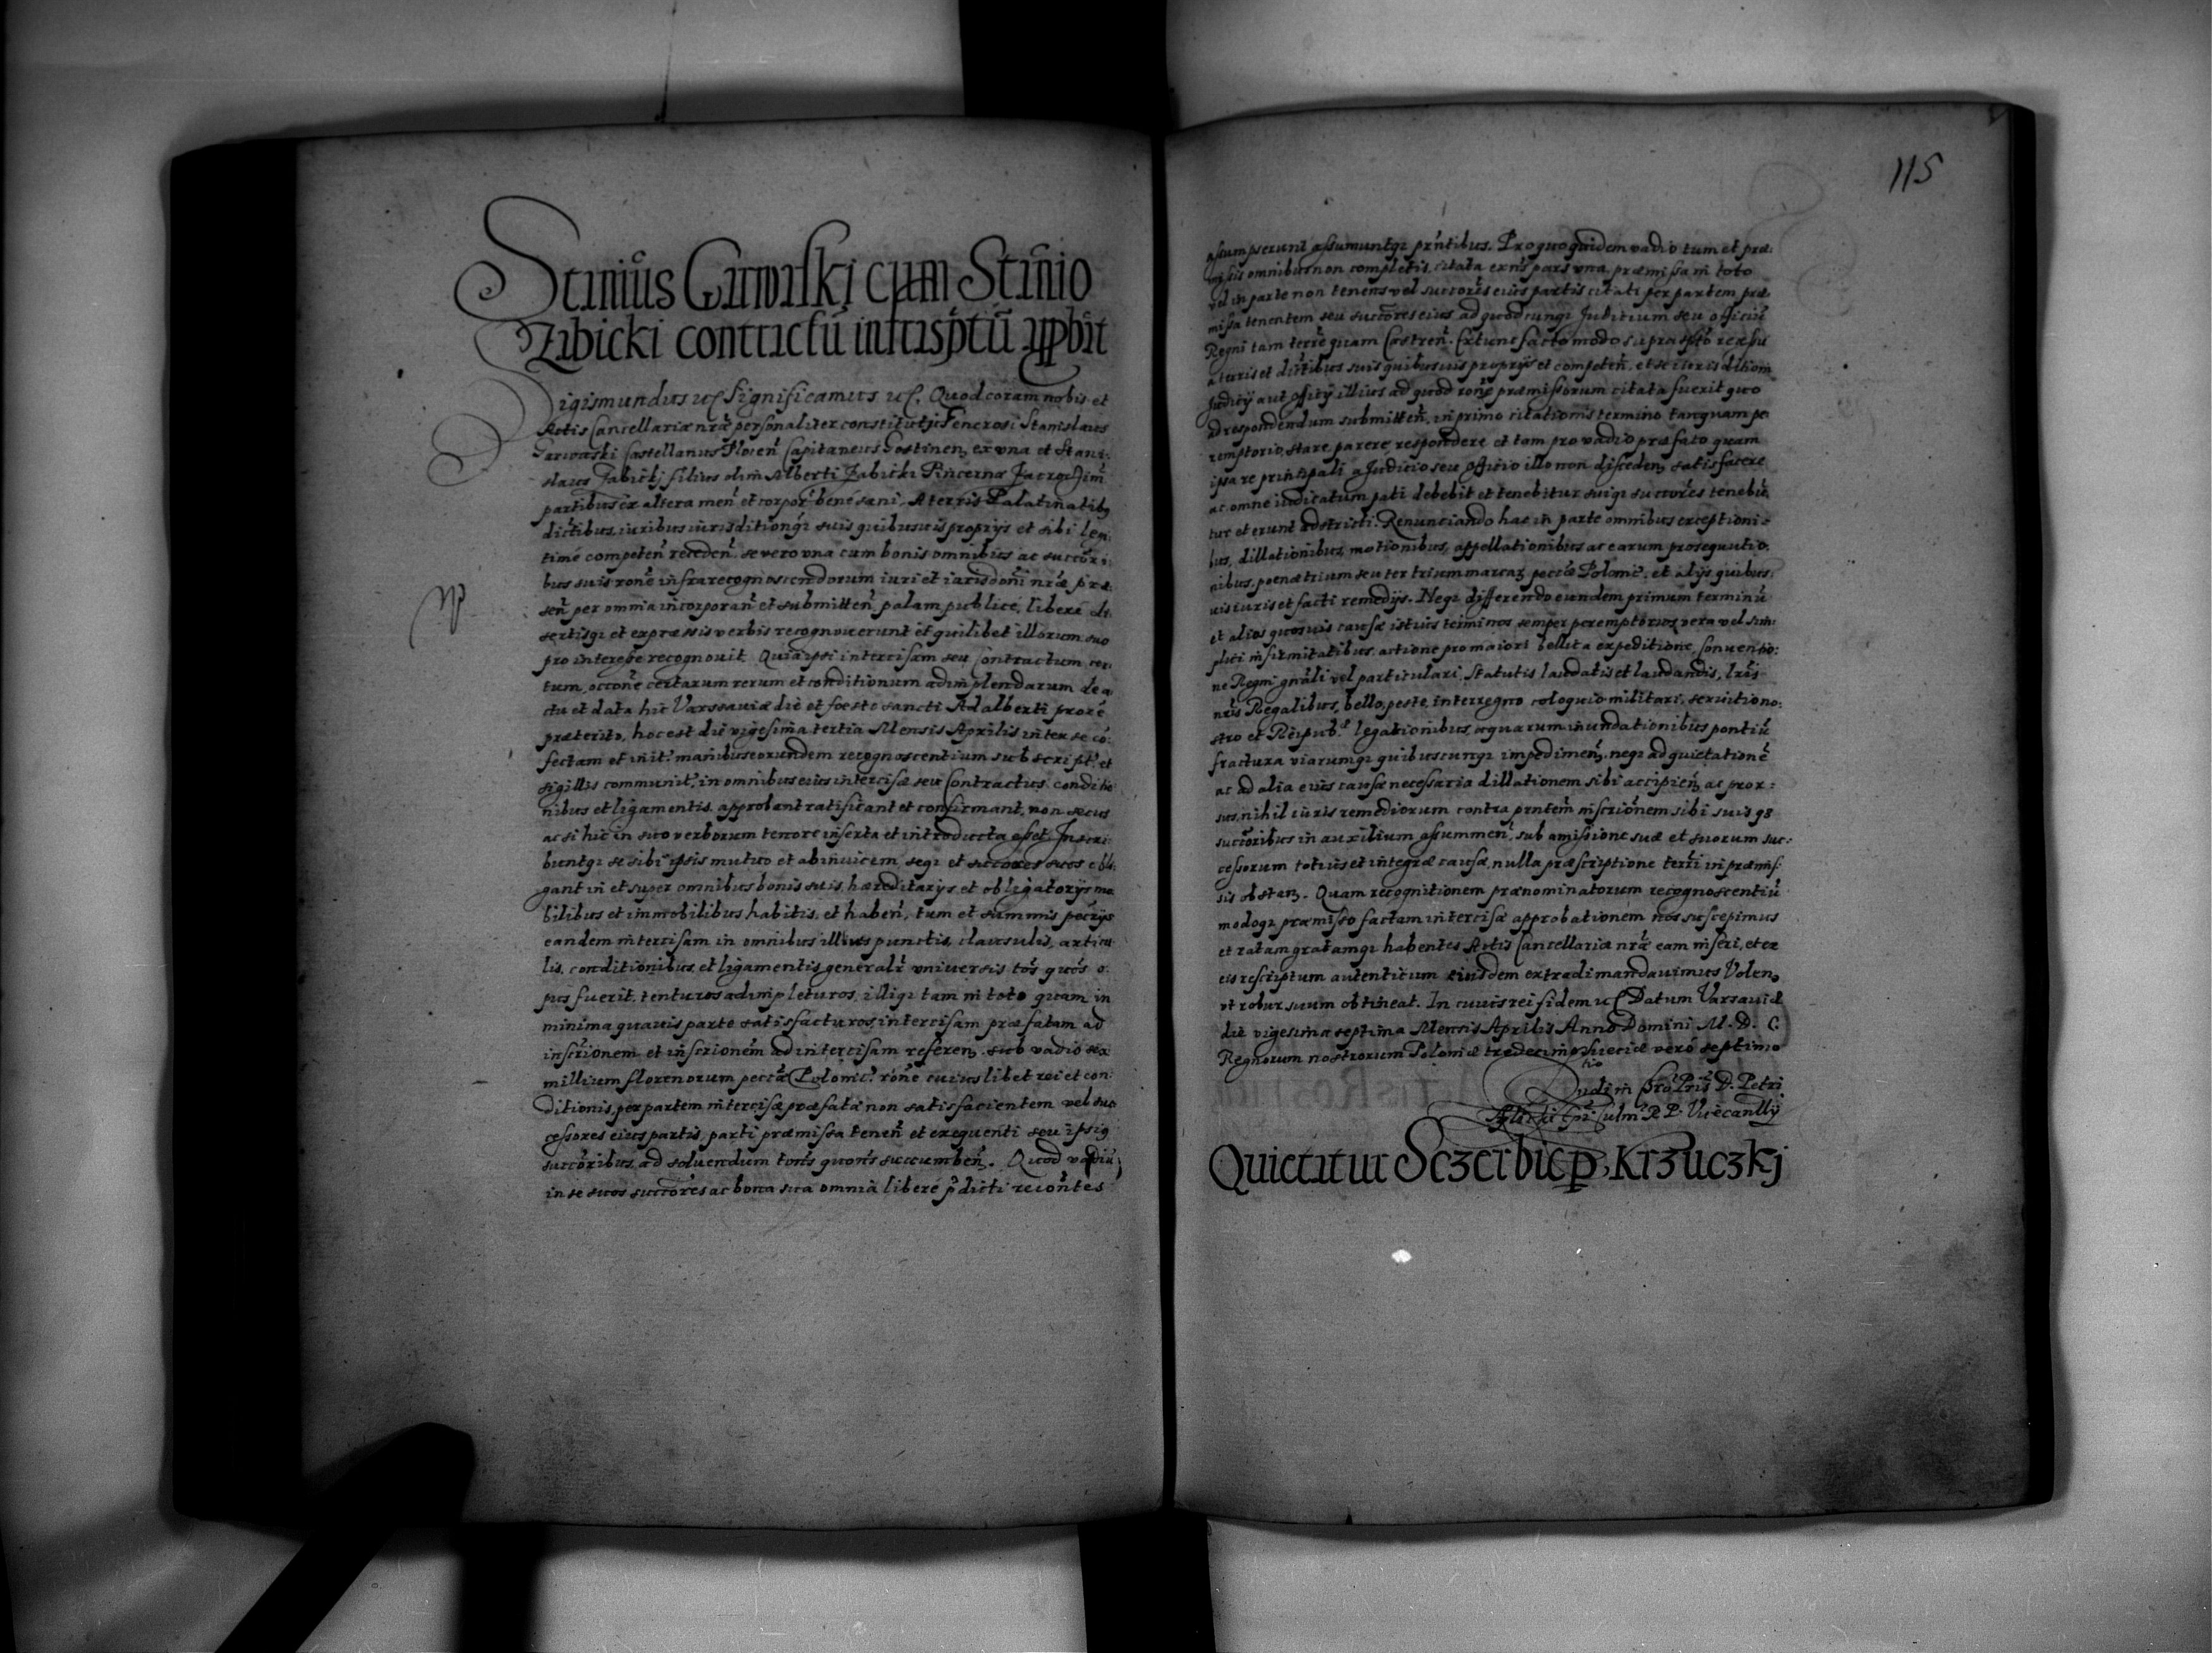 Stniūs Garwaski cum Stnio
Zabicki contractū infrasptū appbāt
Sigismundus etc. Significamus etc. Quod coram nobis et
Actis Cancellariæ nræ personaliter constituti Generosi Stanislaus
Garwaski Castellanus Plocen̄ Capitaneus Gostinen, ex vna et Stani:
slaus Zabickj filius olim Alberti Zabicki Pincernæ
partibus ex altera men̄ et corpor̄ bene sani. A terris Palatinatib
dictibus, iuribus iurisditionqȝ suis quibusuis proprijs et sibi legi:
time competen̄ receden̄. se vero vna cum bonis omnibus ac succōri:
bus suis rone infrarecognoscendorum iuri et iurisdoni nræ præ:
sen̄ per omnia incorporan̄ et submitten̄, palam publice, libere di:
sertisqȝ et expræssis verbis recognouerunt et quilibet illorum suo
pro interesse recognouit. Quia ipsi intercisam seu Contractum cer:
tum, occone certarum rerum et conditionum adimplendarum de a:
ctu et data hic Varssauiæ die et foesto sancti Adalberti proxe
præterito, hoc est die vigesima tertia Mensis Aprilis inter se cō:
fectam et init. manibus eorundem recognoscentium subscript. et
sigillis communit., in omnibus eius intercisæ seu Contractus conditio
nibus et ligamentis approbant ratificant et confirmant, non secus
ac si hic in suo verborum tenore inserta et introducta esset. Inscri:
buntqȝ se sibi ipsis mutuo et abinuicem seqȝ et succores suos obli:
gant in et super omnibus bonis suis, hæreditarijs et obligatorijs mo
bilibus et immobilibus habitis, et haben̄, tum et summis pecrijs
eandem intercisam in omnibus illius punctis, clausulis, articu
lis, conditionibus, et ligamentis generalr vniuersis tos quos o:
pus fuerit, tenturos adimpleturos, illiqȝ tam in toto quam in
minima quauis parte satisfacturos, intercisam præfatam ad
inscrionem et inscrionem ad intercisam referen, sub vadio sex
millium florenorum peccæ Polonic. rone cuius libet rei et con:
ditionis, per partem intercisæ præfatæ non satisfacientem vel suc
cessores eius partis, parti præmissa tenen̄ et exequenti seu ipsiq
succoribus, ad soluendum tots quots succumben. Quod vadiū
in se suos succores ac bona sua omnia libere p̄dicti recontes
115
assumpserunt assumuntqȝ prntibus. Pro quo quidem vadio tum et præ:
missis omnibus non completis, citata exns pars vna præmissa in toto
vel in parte non tenens vel succores eius partis citati per partem præ:
missa tenentem seu succores eius, ad quodcunqȝ Judicium seu officiū
Regni tam terre quam Castren. Extunc facto modo supra spto recessu
a terris et dictibus suis quibusuis proprijs et competen̄, et se iurisditioni
Judicij aut officij illius ad quod rone præmissorum citata fuerit quo
ad respondendum submitten̄, in primo citationis termino tanquam pe
remptorio, stare, parere respondere et tam pro vadio præfato quam
ipsa re principali a Judicio seu officio illo non disceden, satisfacere
ac omne iudicatum pati debebit et tenebitur suiqȝ succores tenebū
tur et erunt adstricti. Renunciando hac in parte omnibus exceptioni:
bus, dillationibus motionibus, appellationibus ac earum prosequutio:
nibus, poenæ trium seu ter trium marcar peccæ Polonic. et alijs quibus:
uis iuris et facti remedijs. Neqȝ differendo eundem primum terminū
et alios quosuis causæ istius terminos semper peremptorios, vera vel sim:
plici infirmitatibus, actione pro maiori bellica expeditione, Conuentio:
ne Regni gnāli vel particulari, Statutis laudatis et laudandis, lris
nris Regalibus, bello, peste, interregno cologuio militari, seruitio no:
stro et Reipub. legationibus, aquarum inundationibus pontiū
fractura viarumqȝ quibuscunqȝ impedimen̄, neqȝ ad quietatione
ac ad alia eius causæ necessaria dillationem sibi accipien, ac pror:
sus, nihil iuris remediorum contra prntem inscrionem sibi suisqȝ
succoribus in auxilium assummen̄. sub amissione suæ et suorum suc:
cessorum totius et integræ causæ, nulla præscriptione terri in præmis:
sis obstan. Quam recognitionem prænominatorum recognoscentiū
modoqȝ præmisso factam intercisæ approbationem nos suscepimus
et ratam gratamqȝ habentes Actis Cancellariæ nræ eam inseri, et ex
eis rescriptum autenticum eiusdem extradi mandauimus Volen,
vt robur suum obtineat. In cuius rei fidem etc. Datum Varsauiæ
die vigesima septima Mensis Aprilis Anno Domini M. D. C.
Regnorum nostrorum Poloniæ tredecimo Sueciæ vero septimo
tio
D. Petri
Culm. R. P. Vicecanllij
Quietatur Sczerbic p Krzuczkj